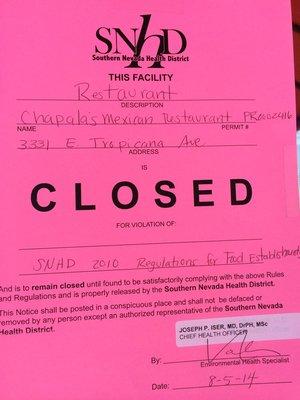 SNhD
Southern Nevada Health District
THIS FACILITY
Restaurant
DESCRIPTION
Chapala's Mexican Restaurant
NAME PERMIT #
3331 E. Tropicana Ave
ADDRESS
IS
CLOSED
FOR VIOLATION OF:
SNHD 2010 Regulations for Food Establishments
And is to remain closed until found to be satisfactorily complying with the above Rules
and Regulations and is properly released by the Southern Nevada Health District.
This Notice shall be posted in a conspicuous place and shall not be defaced or
removed by any person except an authorized representative of the Southern Nevada
Health District.
JOSEPH P. ISER, MD, DrPH, MSc
CHIEF HEALTH OFFICER
By:
Environmental Health Specialist
Date: 8-5-14